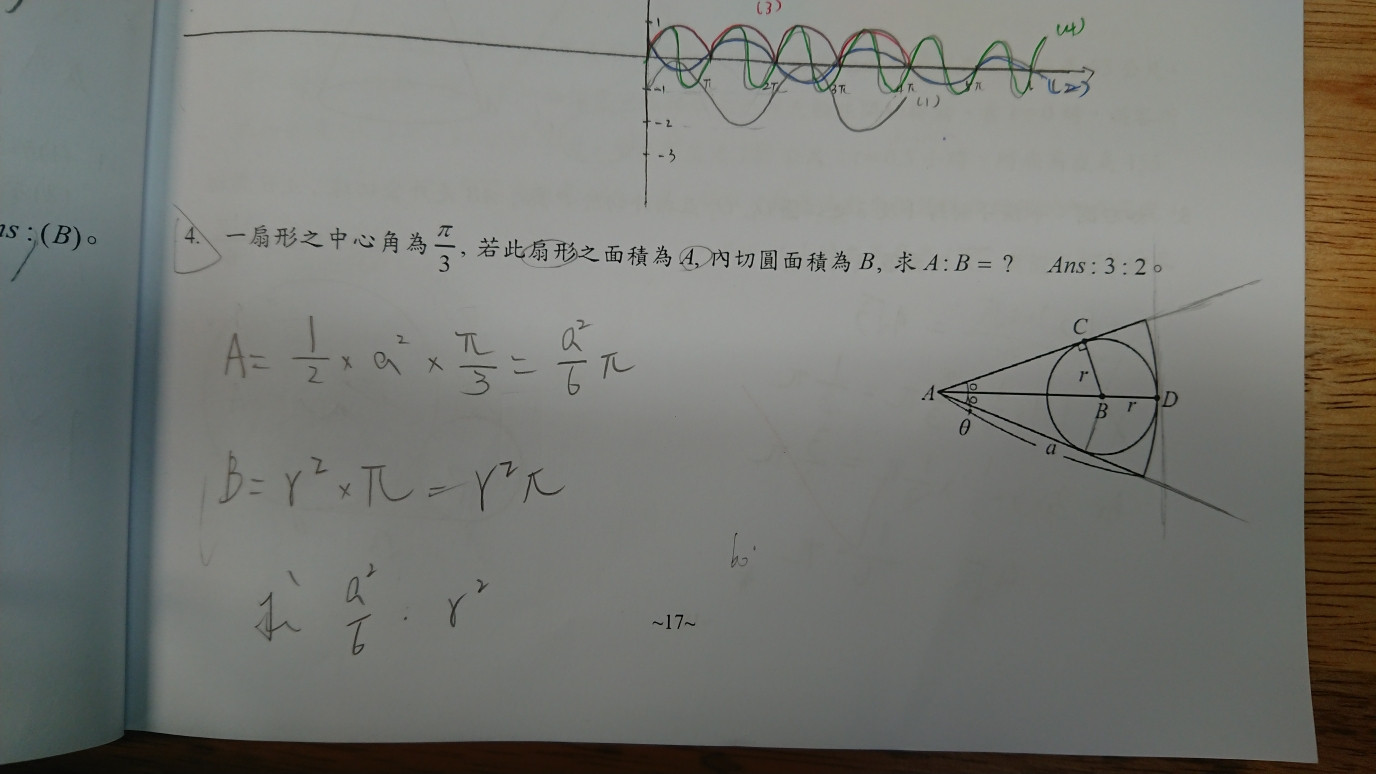 (3)
(4)
1
-1
π 2π 3π 4π π
(1)
(2)
-2
-3
ns : (B)。
4. 一扇形之中心角為 π/3, 若此扇形之面積為 A, 內切圓面積為 B, 求 A : B = ? Ans : 3 : 2。
A = 1/2 × a² × π/3 = a²/6 π
C
r
A
B r D
θ
a
B = r² × π = r²π
60°
求 a²/6 : r²
~17~